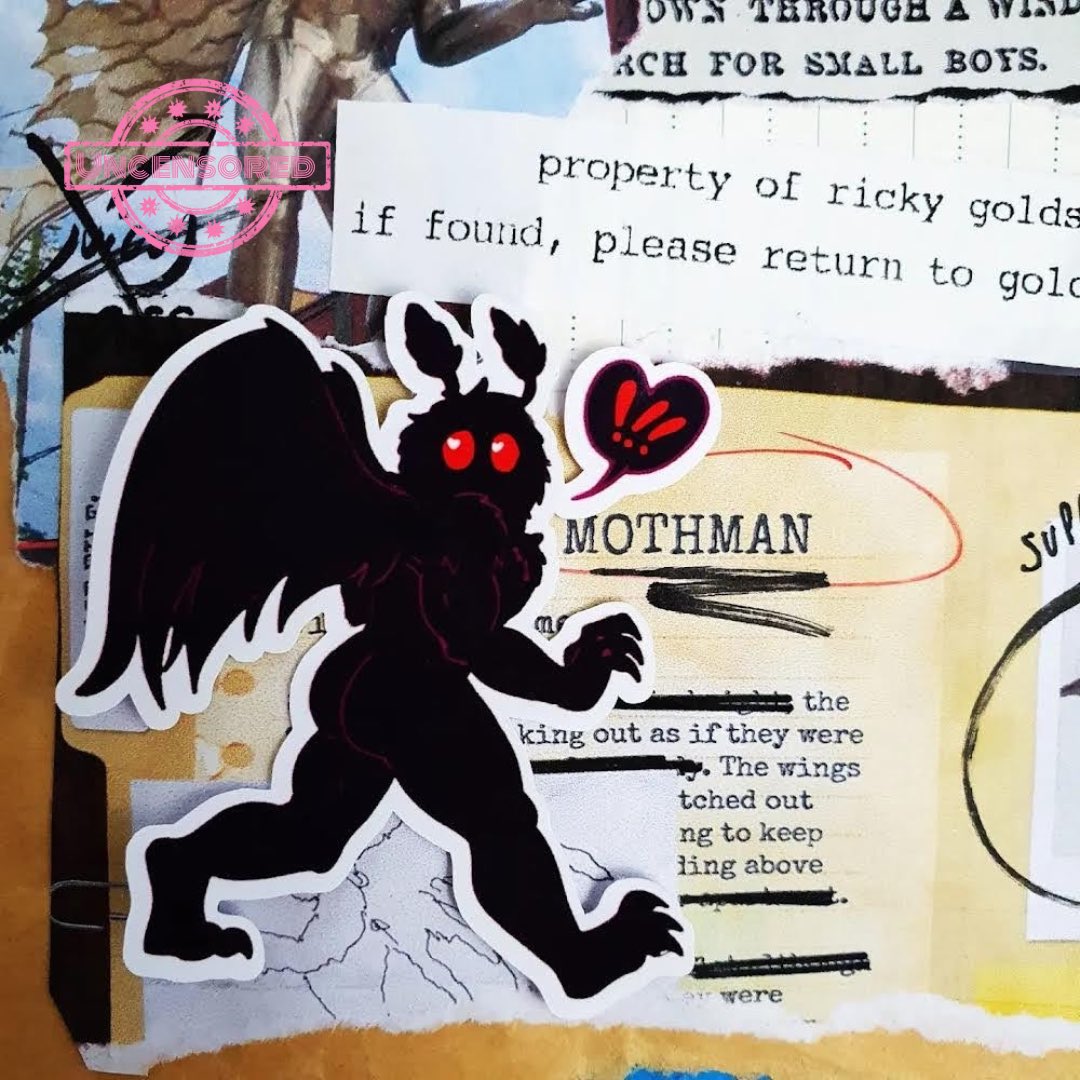 OWN THROUGH A WIND
RCH FOR SMALL BOYS.
UNCENSORED
property of ricky golds
if found, please return to gold
MOTHMAN
SUPP
me
the
king out as if they were
ly. The wings
tched out
ng to keep
ding above
were